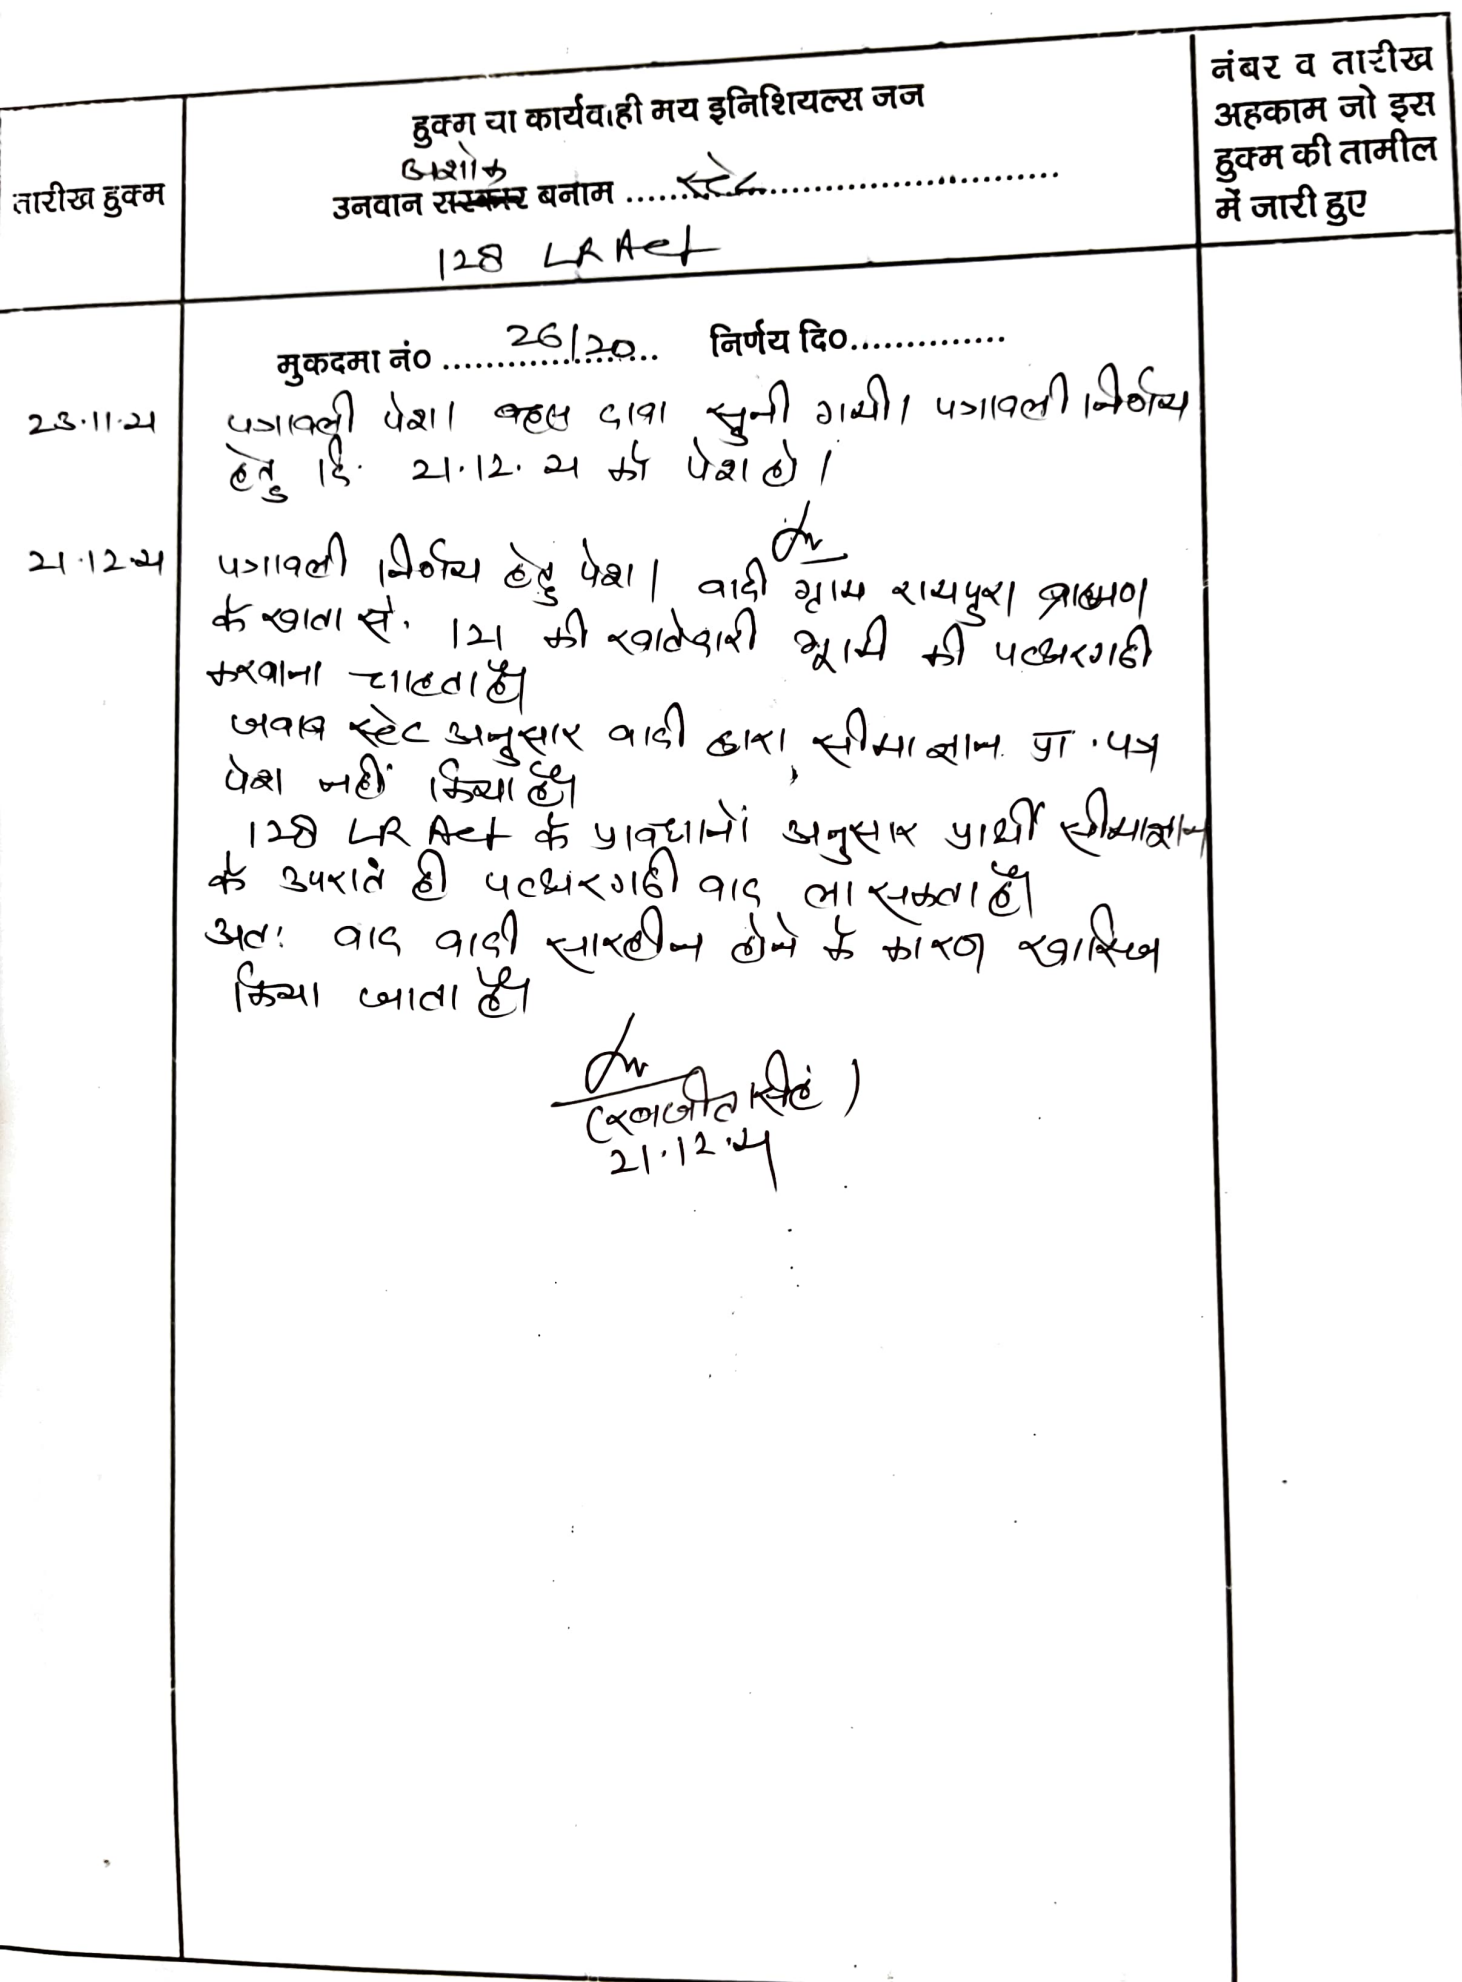 तारीख हुक्म
हुक्म या कार्यवाही मय इनिशियल्स जज
अशोक
उनवान सरकार बनाम ..... स्टेट .....
128 LR Act
नंबर व तारीख
अहकाम जो इस
हुक्म की तामील
में जारी हुए
मुकदमा नं० ..... 26/20 ..... निर्णय दि०..............
23.11.21 पत्रावली पेश। बहस दावा सुनी गयी। पत्रावली निर्णय
हेतु दि. 21.12.21 को पेश हो।
21.12.21 पत्रावली निर्णय हेतु पेश। वादी ग्राम रायपुरा ब्राह्मण
के खाता सं. 121 की खातेदारी भूमी की पत्थरगढी
करवाना चाहता है।
जवाब स्टेट अनुसार वादी द्वारा सीमाज्ञान प्रा.पत्र
पेश नहीं किया है।
128 LR Act के प्रावधानों अनुसार प्रार्थी सीमाज्ञान
के उपरांत ही पत्थरगढी वाद ला सकता है।
अतः वाद वादी सारहीन होने के कारण खारिज
किया जाता है।
(रणजीत सिंह)
21.12.21